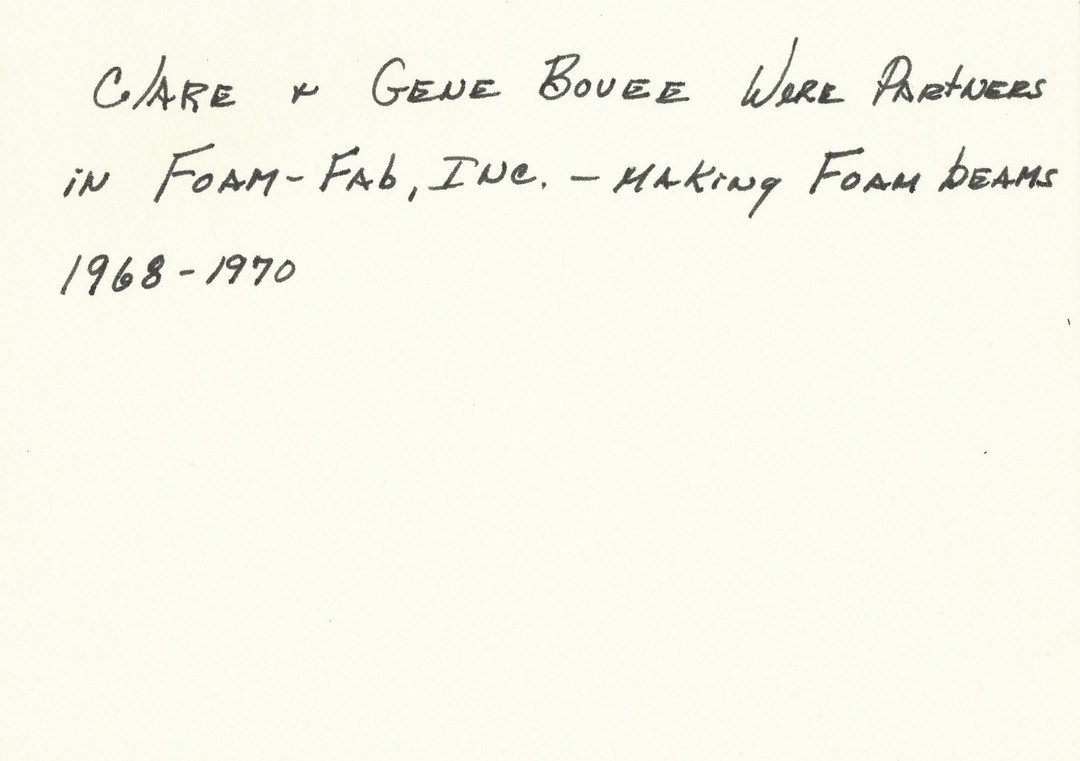 Clare & Gene Bovee Were Partners
in Foam-Fab, Inc. - Making Foam beams
1968-1970